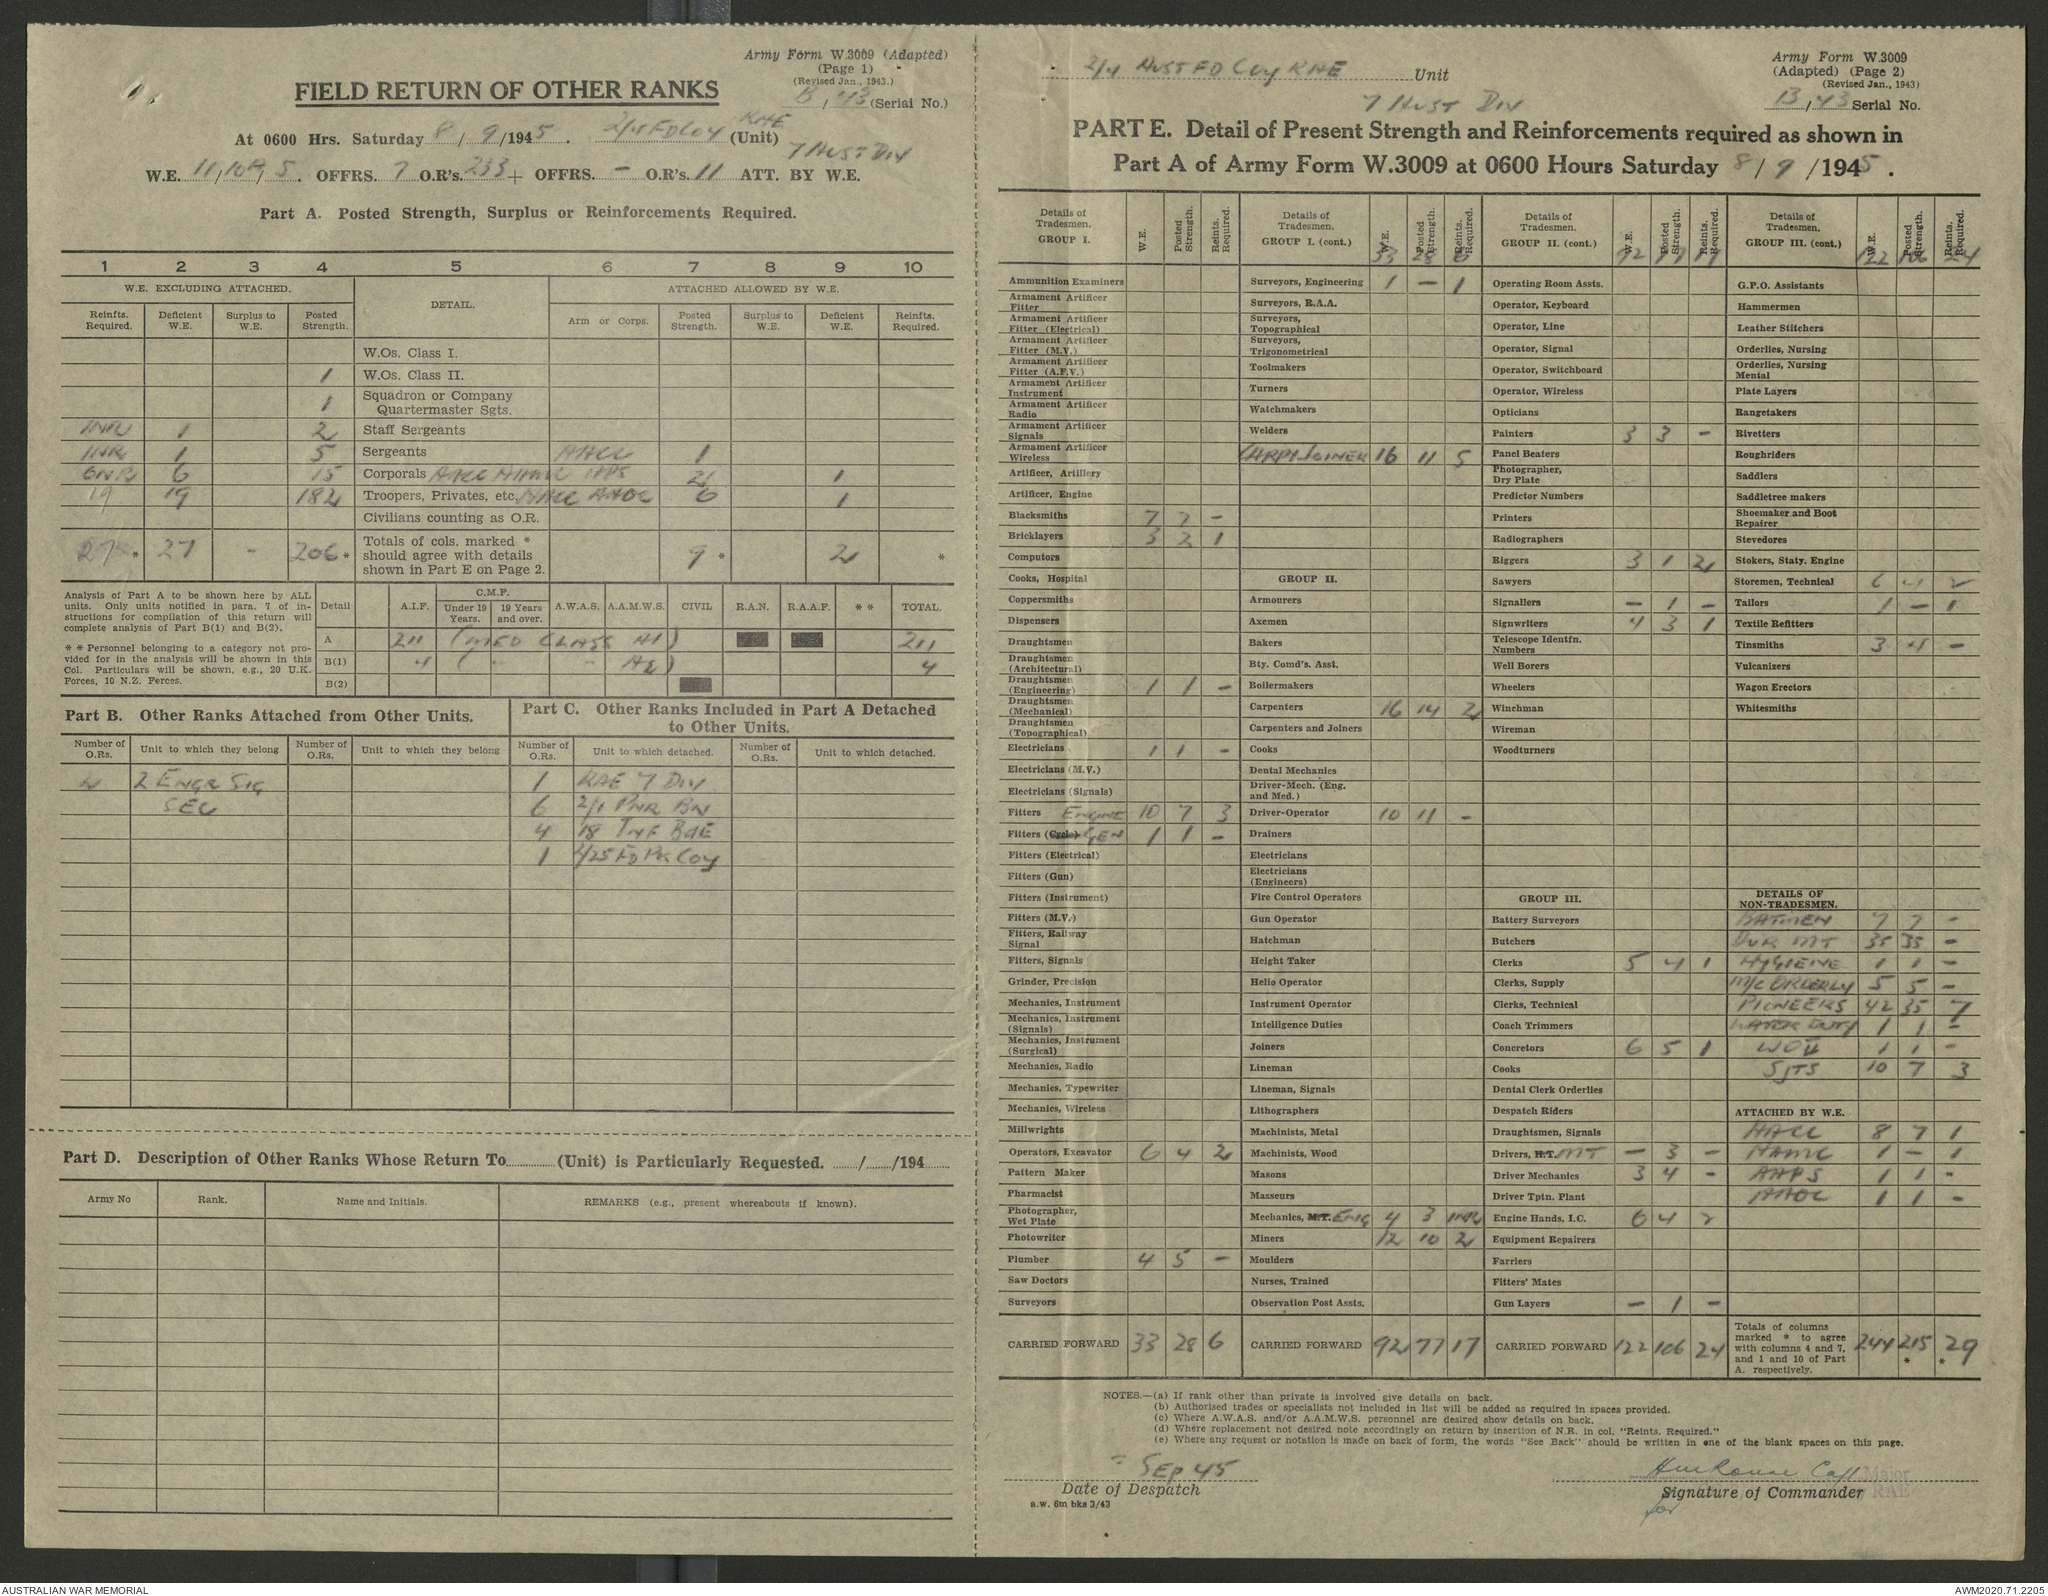 Army Form W.3009 (Adapted)
(Page 1)
(Revised Jan., 1943.)
FIELD RETURN OF OTHER RANKS
B / 43 (Serial No.)
At 0600 Hrs. Saturday 8 / 9 /1945. 2/4 FD COY RAE (Unit)
7 AUST DIV
W.E. OFFRS. 7 O.R's. 233 + OFFRS. – O.R's. 11 ATT. BY W.E.
Part A. Posted Strength, Surplus or Reinforcements Required.
1 2 3 4 5 6 7 8 9 10
W.E. EXCLUDING ATTACHED. DETAIL. ATTACHED ALLOWED BY W.E.
Reinfts. Required. Deficient W.E. Surplus to W.E. Posted Strength. Arm or Corps. Posted Strength. Surplus to W.E. Deficient W.E. Reinfts. Required.
W.Os. Class I.
1 W.Os. Class II.
1 Squadron or Company Quartermaster Sgts.
1NR 1 2 Staff Sergeants
1NR 1 5 Sergeants AACC 1
6NR 6 15 Corporals AACC AAMC AAPS 2 1
19 19 182 Troopers, Privates, etc. AACC AAOC 6 1
Civilians counting as O.R.
27 * 27 - 206 * Totals of cols. marked * should agree with details shown in Part E on Page 2. 9 * 2 *
Analysis of Part A to be shown here by ALL units. Only units notified in para. 7 of instructions for compilation of this return will complete analysis of Part B(1) and B(2).
* * Personnel belonging to a category not provided for in the analysis will be shown in this Col. Particulars will be shown, e.g., 20 U.K. Forces, 10 N.Z. Forces.
Detail A.I.F. C.M.F. Under 19 Years. 19 Years and over. A.W.A.S. A.A.M.W.S. CIVIL R.A.N. R.A.A.F. * * TOTAL.
A 211 (MED CLASS A1) 211
B(1) 4 ( " " A2) 4
B(2)
Part B. Other Ranks Attached from Other Units.
Part C. Other Ranks Included in Part A Detached to Other Units.
Number of O.Rs. Unit to which they belong Number of O.Rs. Unit to which they belong Number of O.Rs. Unit to which detached. Number of O.Rs. Unit to which detached.
2 ENGR SIG 1 RAE 7 DIV
SEC 6 2/1 PNR BN
4 18 INF BDE
1 2/25 FD PK COY
Part D. Description of Other Ranks Whose Return To (Unit) is Particularly Requested. / /194
Army No Rank. Name and Initials. REMARKS (e.g., present whereabouts if known).
2/4 AUST FD COY RAE Unit
7 AUST DIV
Army Form W.3009
(Adapted) (Page 2)
(Revised Jan., 1943)
B / 43 Serial No.
PART E. Detail of Present Strength and Reinforcements required as shown in
Part A of Army Form W.3009 at 0600 Hours Saturday 8 / 9 /1945.
Details of Tradesmen. GROUP I. W.E. Posted Strength. Reints. Required.
Ammunition Examiners
Armament Artificer Fitter
Armament Artificer Fitter (Electrical)
Armament Artificer Fitter (M.V.)
Armament Artificer Fitter (A.F.V.)
Armament Artificer Instrument
Armament Artificer Radio
Armament Artificer Signals
Armament Artificer Wireless
Artificer, Artillery
Artificer, Engine
Blacksmiths 7 7 -
Bricklayers 3 2 1
Computors
Cooks, Hospital
Coppersmiths
Dispensers
Draughtsmen
Draughtsmen (Architectural)
Draughtsmen (Engineering) 1 1 -
Draughtsmen (Mechanical)
Draughtsmen (Topographical)
Electricians 1 1 -
Electricians (M.V.)
Electricians (Signals)
Fitters ENGINE 10 7 3
Fitters (Cycle) GEN 1 1 -
Fitters (Electrical)
Fitters (Gun)
Fitters (Instrument)
Fitters (M.V.)
Fitters, Railway Signal
Fitters, Signals
Grinder, Precision
Mechanics, Instrument
Mechanics, Instrument (Signals)
Mechanics, Instrument (Surgical)
Mechanics, Radio
Mechanics, Typewriter
Mechanics, Wireless
Millwrights
Operators, Excavator 6 4 2
Pattern Maker
Pharmacist
Photographer, Wet Plate
Photowriter
Plumber 4 5 -
Saw Doctors
Surveyors
CARRIED FORWARD 33 28 6
Details of Tradesmen. GROUP I. (cont.) W.E. Posted Strength. Reints. Required.
33 28 6
Surveyors, Engineering 1 - 1
Surveyors, R.A.A.
Surveyors, Topographical
Surveyors, Trigonometrical
Toolmakers
Turners
Watchmakers
Welders
CARP & JOINER 16 11 5
GROUP II.
Armourers
Axemen
Bakers
Bty. Comd's. Asst.
Boilermakers
Carpenters 16 14 2
Carpenters and Joiners
Cooks
Dental Mechanics
Driver-Mech. (Eng. and Med.)
Driver-Operator 10 11 -
Drainers
Electricians
Electricians (Engineers)
Fire Control Operators
Gun Operator
Hatchman
Height Taker
Helio Operator
Instrument Operator
Intelligence Duties
Joiners
Lineman
Lineman, Signals
Lithographers
Machinists, Metal
Machinists, Wood
Masons
Masseurs
Mechanics, M.T. ENG 4 3 1NR
Miners 12 10 2
Moulders
Nurses, Trained
Observation Post Assts.
CARRIED FORWARD 92 77 17
Details of Tradesmen. GROUP II. (cont.) W.E. Posted Strength. Reints. Required.
92 77 17
Operating Room Assts.
Operator, Keyboard
Operator, Line
Operator, Signal
Operator, Switchboard
Operator, Wireless
Opticians
Painters 3 3 -
Panel Beaters
Photographer, Dry Plate
Predictor Numbers
Printers
Radiographers
Riggers 3 1 2
Sawyers
Signallers - 1 -
Signwriters 4 3 1
Telescope Identfn. Numbers
Well Borers
Wheelers
Winchman
Wireman
Woodturners
GROUP III.
Battery Surveyors
Butchers
Clerks 5 4 1
Clerks, Supply
Clerks, Technical
Coach Trimmers
Concretors 6 5 1
Cooks
Dental Clerk Orderlies
Despatch Riders
Draughtsmen, Signals
Drivers, H.T. MT - 3 -
Driver Mechanics 3 4 -
Driver Tptn. Plant
Engine Hands, I.C. 6 4 2
Equipment Repairers
Farriers
Fitters' Mates
Gun Layers - 1 -
CARRIED FORWARD 122 106 24
Details of Tradesmen. GROUP III. (cont.) W.E. Posted Strength. Reints. Required.
122 106 24
G.P.O. Assistants
Hammermen
Leather Stitchers
Orderlies, Nursing
Orderlies, Nursing Mental
Plate Layers
Rangetakers
Rivetters
Roughriders
Saddlers
Saddletree makers
Shoemaker and Boot Repairer
Stevedores
Stokers, Staty. Engine
Storemen, Technical 6 4 2
Tailors 1 - 1
Textile Refitters
Tinsmiths 3 4 -
Vulcanizers
Wagon Erectors
Whitesmiths
DETAILS OF NON-TRADESMEN.
BATMEN 7 7 -
DVR MT 35 35 -
HYGIENE 1 1 -
M/C ORDERLY 5 5 -
PIONEERS 42 35 7
WATER DUTY 1 1 -
WOII 1 1 -
SJTS 10 7 3
ATTACHED BY W.E.
AACC 8 7 1
AAMC 1 - 1
AAPS 1 1 -
AAOC 1 1 -
Totals of columns marked * to agree with columns 4 and 7, and 1 and 10 of Part A. respectively. 244 215 * * 29
NOTES.—(a) If rank other than private is involved give details on back.
(b) Authorised trades or specialists not included in list will be added as required in spaces provided.
(c) Where A.W.A.S. and/or A.A.M.W.S. personnel are desired show details on back.
(d) Where replacement not desired note accordingly on return by insertion of N.R. in col. "Reints. Required."
(e) Where any request or notation is made on back of form, the words "See Back" should be written in one of the blank spaces on this page.
Sep 45
Date of Despatch
a.w. 6m bks 3/43
Capt Major
Signature of Commander RAE
for
AUSTRALIAN WAR MEMORIAL
AWM2020.71.2205